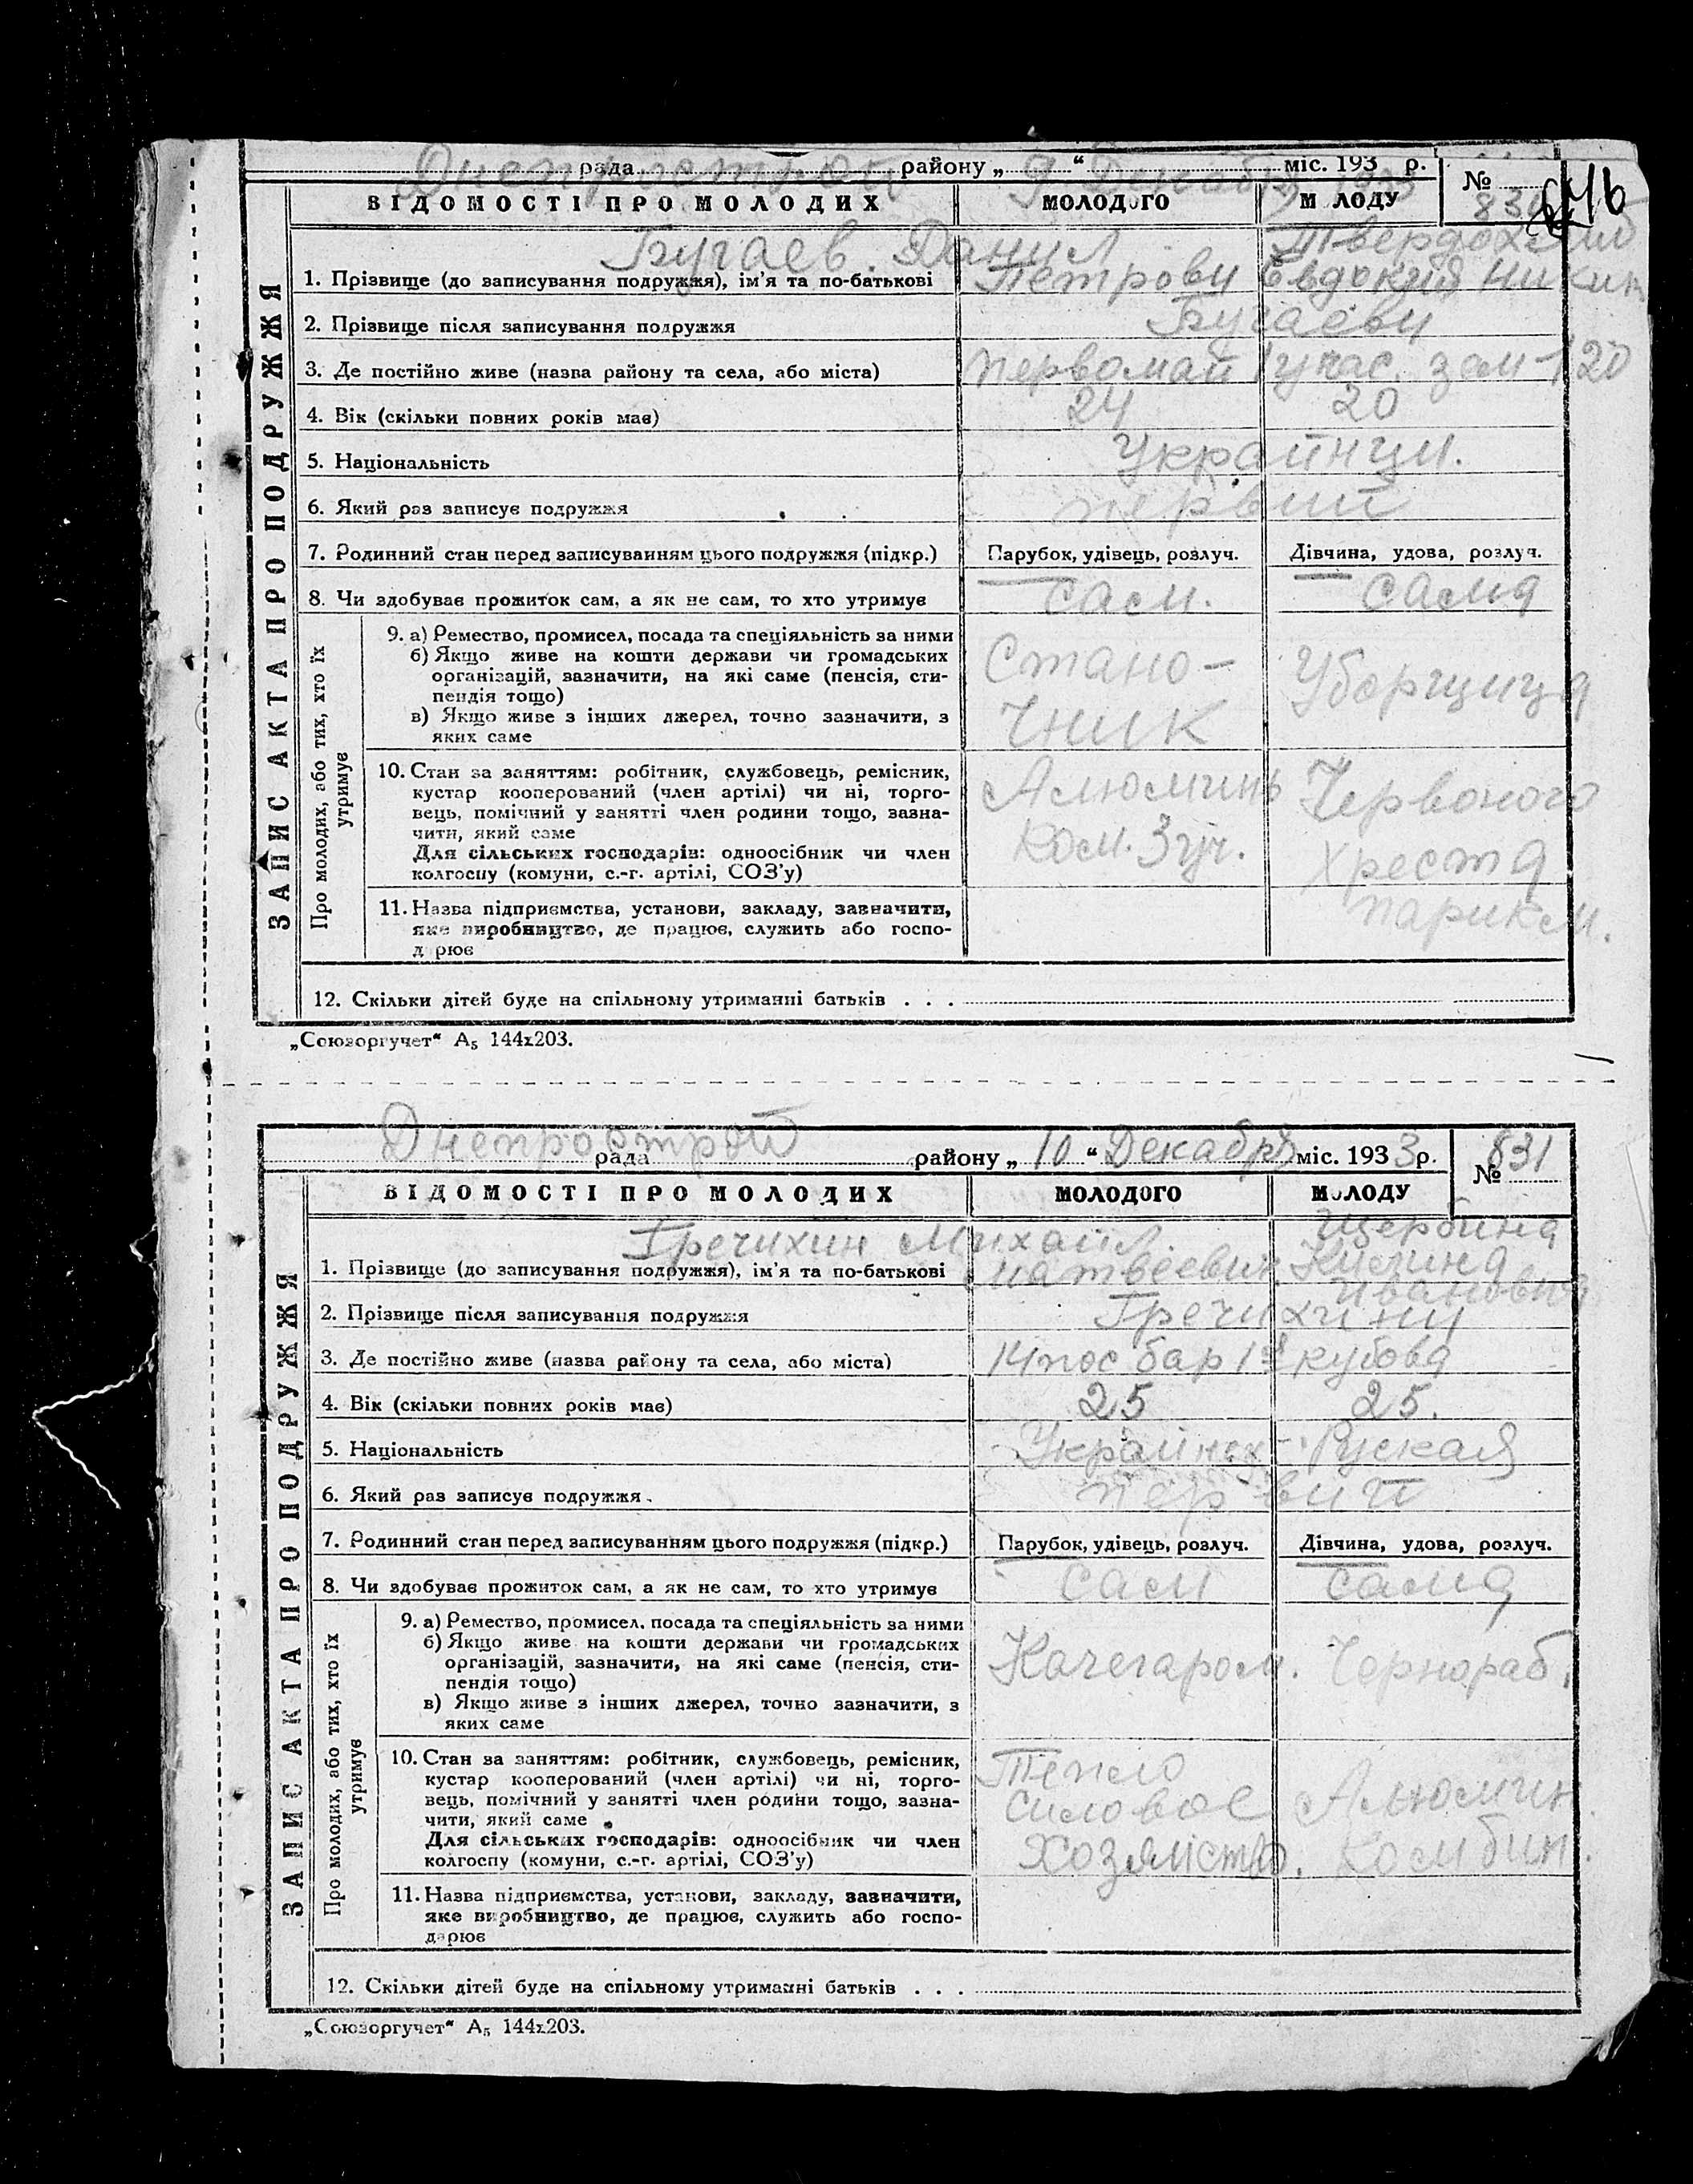 Днепрострой
рада району „ 9 “ Декабрь міс. 193 3 р.
№ 830
646
ВІДОМОСТІ ПРО МОЛОДИХ МОЛОДОГО МОЛОДУ
ЗАПИС АКТА ПРО ПОДРУЖЖЯ
Бугаев Данил Твердохлиб
1. Прізвище (до записування подружжя), ім'я та по-батькові Петрови Евдокия Никит
2. Прізвище після записування подружжя Бугаеви
3. Де постійно живе (назва району та села, або міста) первомай 1 учас. зем-120
4. Вік (скільки повних років має) 24 20
5. Національність Украинци.
6. Який раз записує подружжя первий
7. Родинний стан перед записуванням цього подружжя (підкр.) Парубок, удівець, розлуч. Дівчина, удова, розлуч.
8. Чи здобуває прожиток сам, а як не сам, то хто утримує сам. сама
Про молодих, або тих, хто їх утримує
9. а) Ремество, промисел, посада та спеціяльність за ними
б) Якщо живе на кошти держави чи громадських
організацій, зазначити, на які саме (пенсія, сти-
пендія тощо)
в) Якщо живе з інших джерел, точно зазначити, з
яких саме
Стано-
чник
Уборщица
10. Стан за заняттям: робітник, службовець, ремісник,
кустар кооперований (член артілі) чи ні, торго-
вець, помічний у занятті член родини тощо, зазна-
чити, який саме
Для сільських господарів: одноосібник чи член
колгоспу (комуни, с.-г. артілі, СОЗ'у)
Алюминь
Ком. 3 уч.
Червоного
Хреста
парикм.
11. Назва підприємства, установи, закладу, зазначити,
яке виробництво, де працює, служить або госпо-
дарює
12. Скільки дітей буде на спільному утриманні батьків . . .
„Союзоргучет“ А5 144х203.
Днепрострой
рада району „ 10 “ Декабрь міс. 193 3 р.
№ 831
ВІДОМОСТІ ПРО МОЛОДИХ МОЛОДОГО МОЛОДУ
ЗАПИС АКТА ПРО ПОДРУЖЖЯ
Гречихин Михаил Щербина
1. Прізвище (до записування подружжя), ім'я та по-батькові Матвеевич
Ивановна
2. Прізвище після записування подружжя Гречихини
3. Де постійно живе (назва району та села, або міста) 14 пос бар 18 кубова
4. Вік (скільки повних років має) 25 25.
5. Національність Украинец - Руская
6. Який раз записує подружжя первий
7. Родинний стан перед записуванням цього подружжя (підкр.) Парубок, удівець, розлуч. Дівчина, удова, розлуч.
8. Чи здобуває прожиток сам, а як не сам, то хто утримує сам сама
Про молодих, або тих, хто їх утримує
9. а) Ремество, промисел, посада та спеціяльність за ними
б) Якщо живе на кошти держави чи громадських
організацій, зазначити, на які саме (пенсія, сти-
пендія тощо)
в) Якщо живе з інших джерел, точно зазначити, з
яких саме
Качегаром. Чернораб.
10. Стан за заняттям: робітник, службовець, ремісник,
кустар кооперований (член артілі) чи ні, торго-
вець, помічний у занятті член родини тощо, зазна-
чити, який саме
Для сільських господарів: одноосібник чи член
колгоспу (комуни, с.-г. артілі, СОЗ'у)
Тепло
силовое
Хозяйство.
Алюмин.
Комбин.
11. Назва підприємства, установи, закладу, зазначити,
яке виробництво, де працює, служить або госпо-
дарює
12. Скільки дітей буде на спільному утриманні батьків . . .
„Союзоргучет“ А5 144х203.